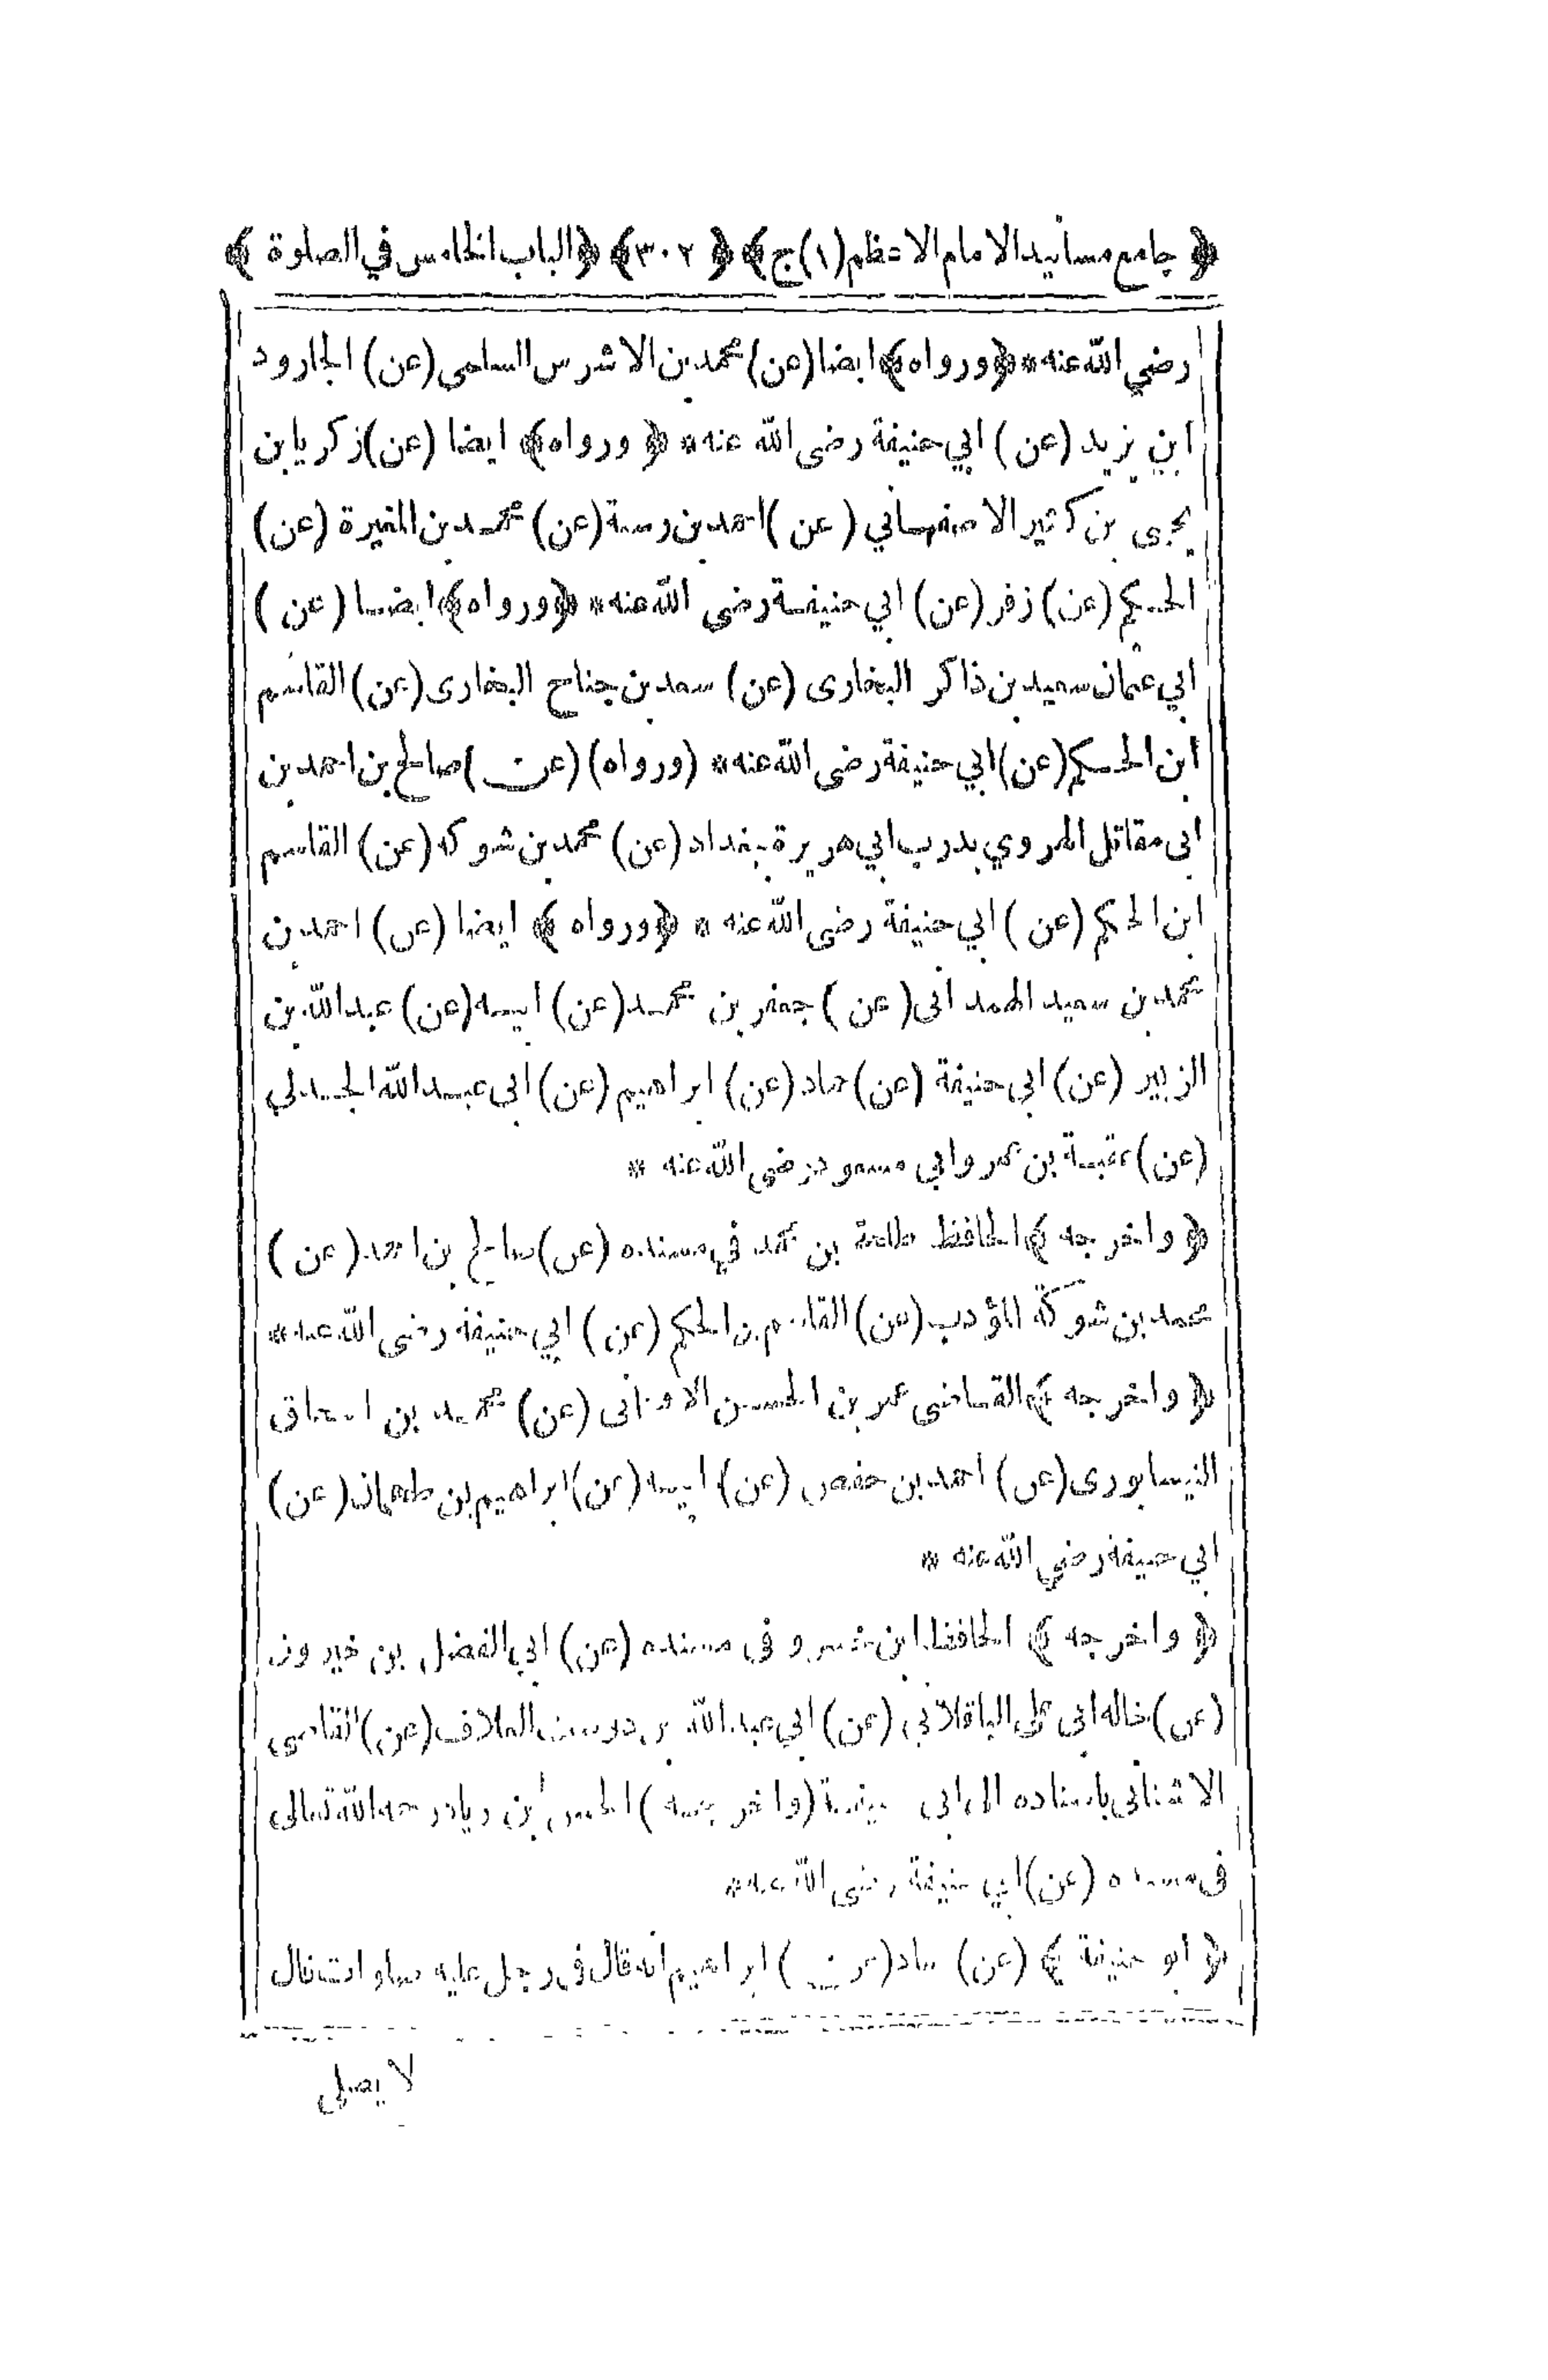 ﴿ جامع مسانيد الامام الاعظم (١) ج ﴾ ﴿ ٣٠٢ ﴾ ﴿ الباب الخامس في الصلوة ﴾
رضي الله عنه * ﴿ ورواه ﴾ ايضا (عن) محمد بن الاشرس السلمى (عن) الجارود
ابن يزيد (عن) ابي حنيفة رضى الله عنه * ﴿ ورواه ﴾ ايضا (عن) زكريا بن
يحيى بن كثير الاصفهاني (عن) احمد بن رستة (عن) محمد بن المغيرة (عن)
الحكم (عن) زفر (عن) ابي حنيفة رضى الله عنه * ﴿ ورواه ﴾ ايضا (عن)
ابي عثمان سعيد بن ذاكر البخارى (عن) سعد بن جناح البخارى (عن) القاسم
ابن الحكم (عن) ابي حنيفة رضى الله عنه * (ورواه) (عن) صالح بن احمد بن
ابى مقاتل الهروي بدرب ابي هريرة ببغداد (عن) محمد بن شوكة (عن) القاسم
ابن الحكم (عن) ابي حنيفة رضى الله عنه * ﴿ ورواه ﴾ ايضا (عن) احمد بن
محمد بن سعيد الهمدانى (عن) جعفر بن محمد (عن) ابيه (عن) عبد الله بن
الزبير (عن) ابى حنيفة (عن) حماد (عن) ابراهيم (عن) ابى عبد الله الجدلي
(عن) عقبة بن عمرو ابي مسعود رضى الله عنه *
﴿ واخرجه ﴾ الحافظ طلحة بن محمد في مسنده (عن) صالح بن احمد (عن)
محمد بن شوكة المؤدب (عن) القاسم بن الحكم (عن) ابي حنيفة رضى الله عنه *
﴿ واخرجه ﴾ القاضى عمر بن الحسن الاشنانى (عن) محمد بن اسحاق
النيسابورى (عن) احمد بن حفص (عن) ابيه (عن) ابراهيم بن طهمان (عن)
ابي حنيفة رضي الله عنه *
﴿ واخرجه ﴾ الحافظ ابن خسرو في مسنده (عن) ابي الفضل بن خيرون
(عن) خاله ابى على الباقلاني (عن) ابي عبد الله بن دوست العلاف (عن) القاضى
الاشنانى باسناده الى ابى حنيفة (واخرجه) الحسن بن زياد رحمه الله تعالى
فى مسنده (عن) ابي حنيفة رضى الله عنه *
﴿ ابو حنيفة ﴾ (عن) حماد (عن) ابراهيم انه قال فى رجل عليه صلوات قال
لا يصلى